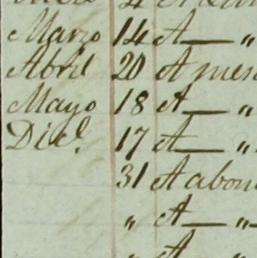 Marzo 14 A — "
Abril 20 A
Mayo 18 A — "
Dice. 17 A — "
31 A
" A — "
" A